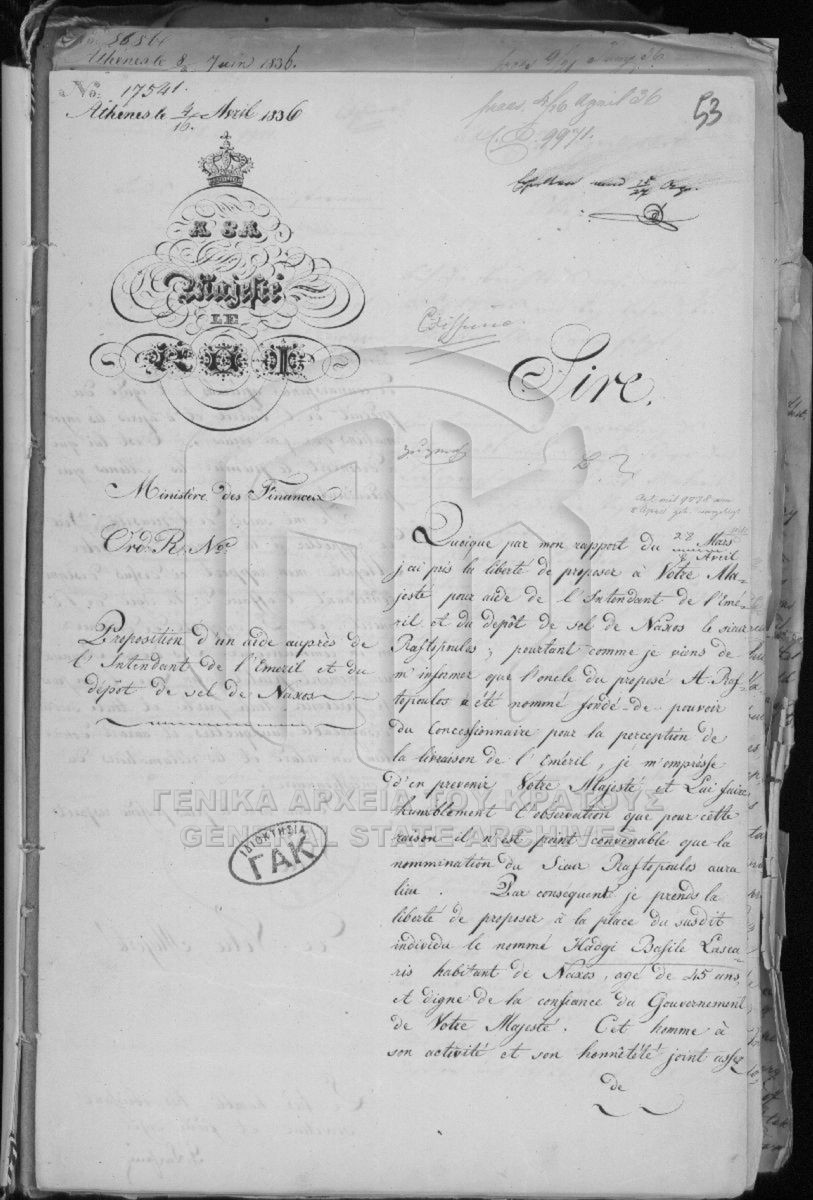 5656
Athènes le 8 Juin 1836.
No: 17541.
Athènes le 4/16. Avril 1836
praes. 4/16 April 36
9971.
53
A SA
Majesté
LE
ROI
Sire.
Ministère des Finances
Ord. R. No
Proposition d'un aide auprès de
l'Intendant de l'Emeril et du
dépôt de sel de Naxos
Quoique par mon rapport du 28 Mars / Avril
j'ai pris la liberté de proposer à Votre Ma-
jesté pour aide de l'Intendant de l'Emé-
ril et du depôt de sel de Naxos le sieur
Raftopoulos, pourtant comme je viens de
m'informer que l'oncle du proposé A. Raf-
topoulos a été nommé fondé-de pouvoir
du Concessionnaire pour la perception de
la livraison de l'Eméril, je m'empresse
d'en prevenir Votre Majesté et Lui faire
humblement l'observation que pour cette
raison il n'est point convenable que la
nommination du Sieur Raftopoulos aura
lieu. Par consequent je prends la
liberté de proposer à la place du susdit
individu le nommé Hadgi Basile Lasca-
ris habitant de Naxos, agé de 45 ans,
et digne de la confiance du Gouvernement
de Votre Majesté. Cet homme à
son activité et son honnêtété joint assez
de
ΓΕΝΙΚΑ ΑΡΧΕΙΑ ΤΟΥ ΚΡΑΤΟΥΣ
GENERAL STATE ARCHIVES
ΙΔΙΟΚΤΗΣΙΑ
ΓΑΚ